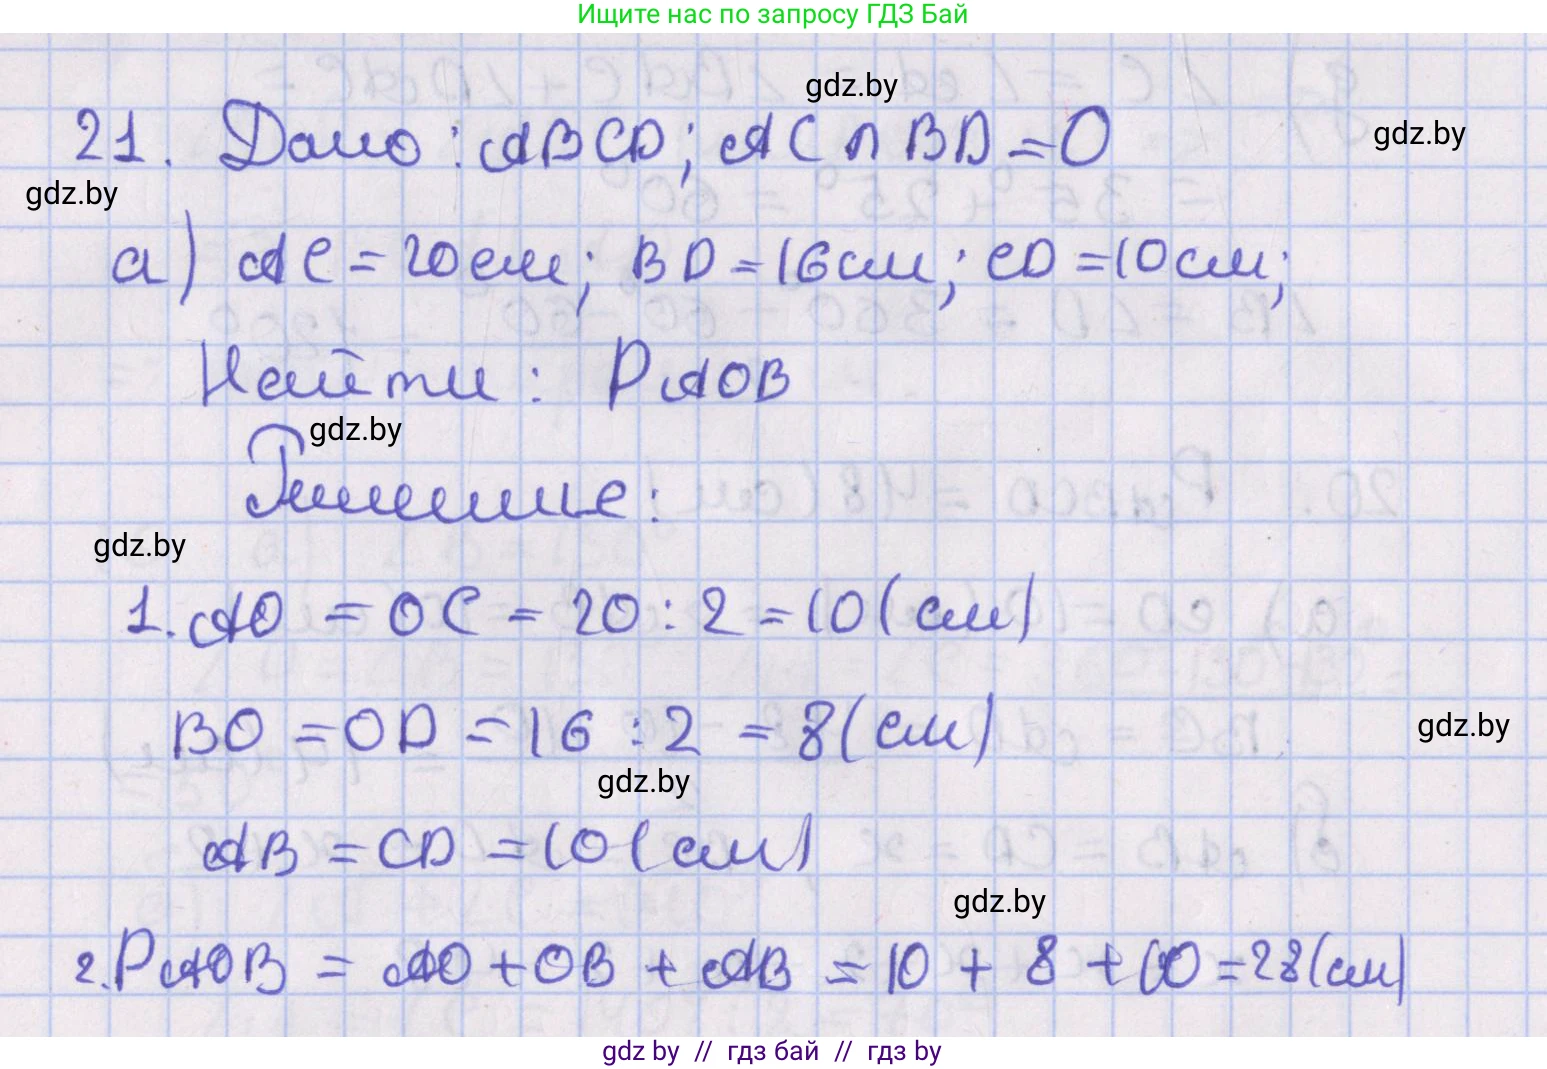 Ищите нас по запросу ГДЗ Бай
gdz.by
21. Дано: ABCD; AC ∩ BD = O
gdz.by
gdz.by
а) AC = 20см; BD = 16см; CD = 10см;
Найти: PAOB
gdz.by
Решение:
gdz.by
1. AO = OC = 20 : 2 = 10 (см)
BO = OD = 16 : 2 = 8 (см)
gdz.by
gdz.by
AB = CD = 10 (см)
gdz.by
2. PAOB = AO + OB + AB = 10 + 8 + 10 = 28 (см)
gdz by // гдз бай // гдз by